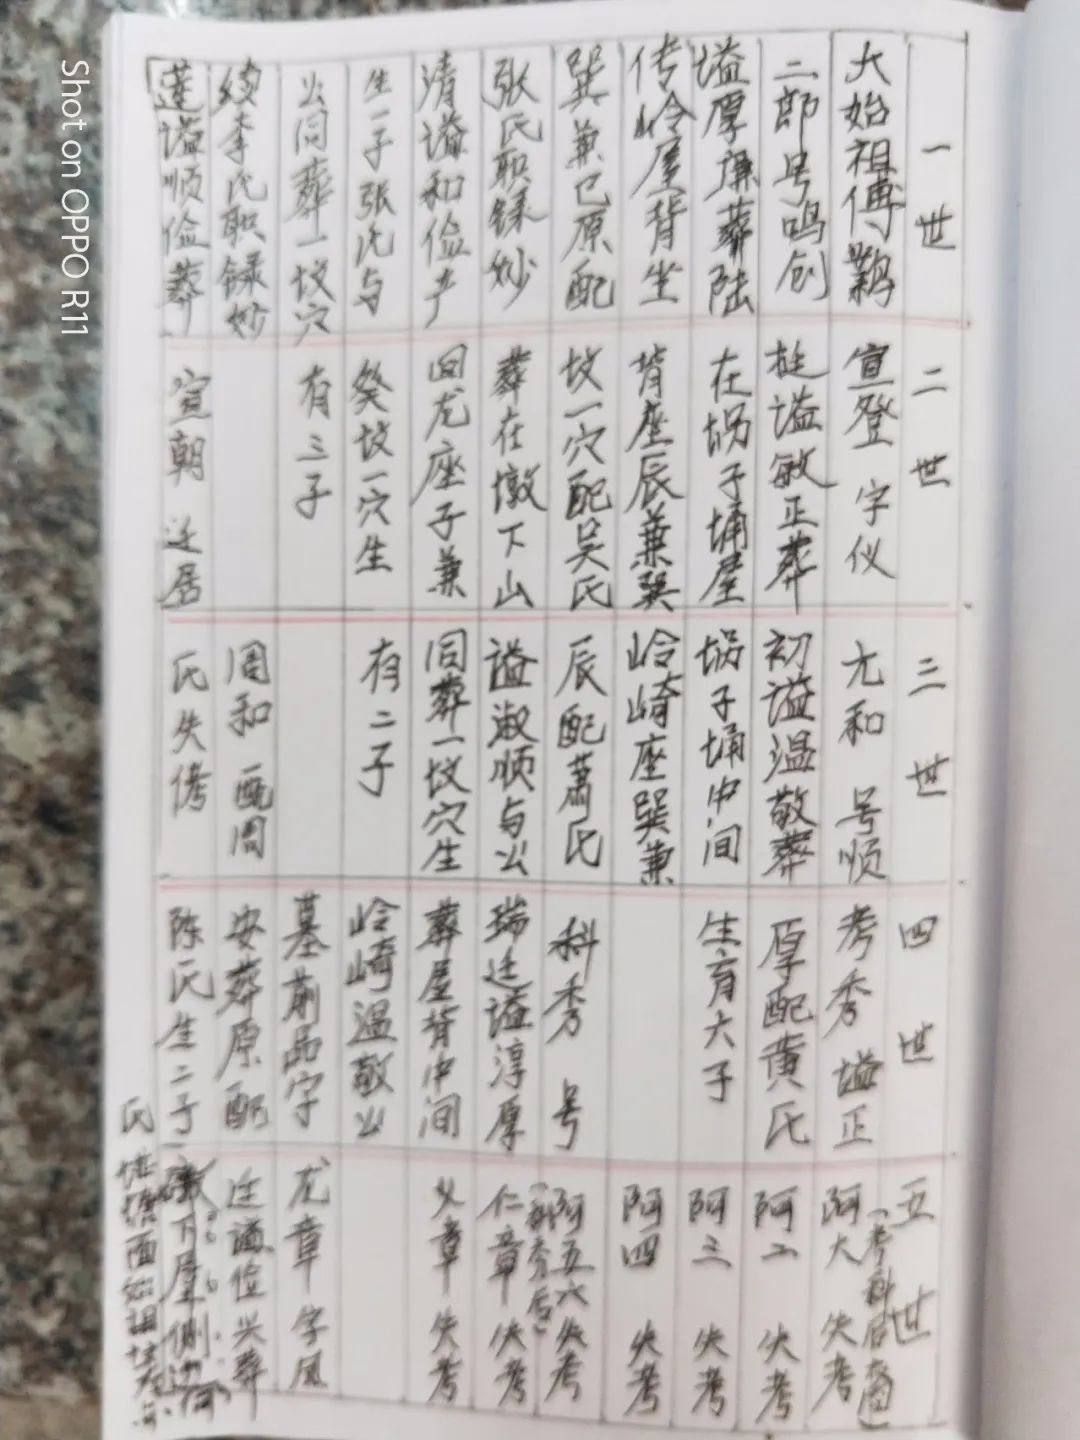 一世
大始祖傅鹅
二郎号鸣创
谥厚谦葬陆
传岭屋背坐
巽兼巳原配
张氏职録妙
清谥和俭产
生一子张氏与
公同葬一坟穴
续李氏职録妙
莲谥顺俭葬
二世
宣登 字仪
梃谥敏正葬
在埚子埇屋
背座辰兼巽
坟一穴配吴氏
葬在墩下山
回龙座子兼
癸坟一穴生
有三子
宣朝 迁居
三世
尤和 号顺
初谥温敬葬
埚子埇中间
岭崎座巽兼
辰配萧氏
谥淑顺与公
同葬一坟穴生
有二子
周和 配周
氏失傳
四世
考秀 谥正
厚配黄氏
生育大子
科秀 号
瑞廷谥淳厚
葬屋背中间
岭崎温敬公
墓前品字
安葬原配
陈氏生二子
氏
五世
阿大 失考
阿二 失考
阿三 失考
阿四 失考
阿五六 失考
仁章 失考
义章 失考
龙章 字凤
廷谥位兴葬
墩下屋侧边
Shot on OPPO R11